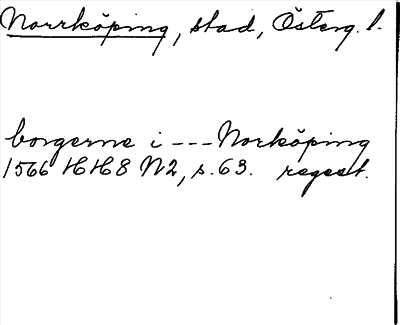 Norrköping, stad, Österg. l.
borgerne i --- Norköping
1566 HH8 N2, s. 63. regest.